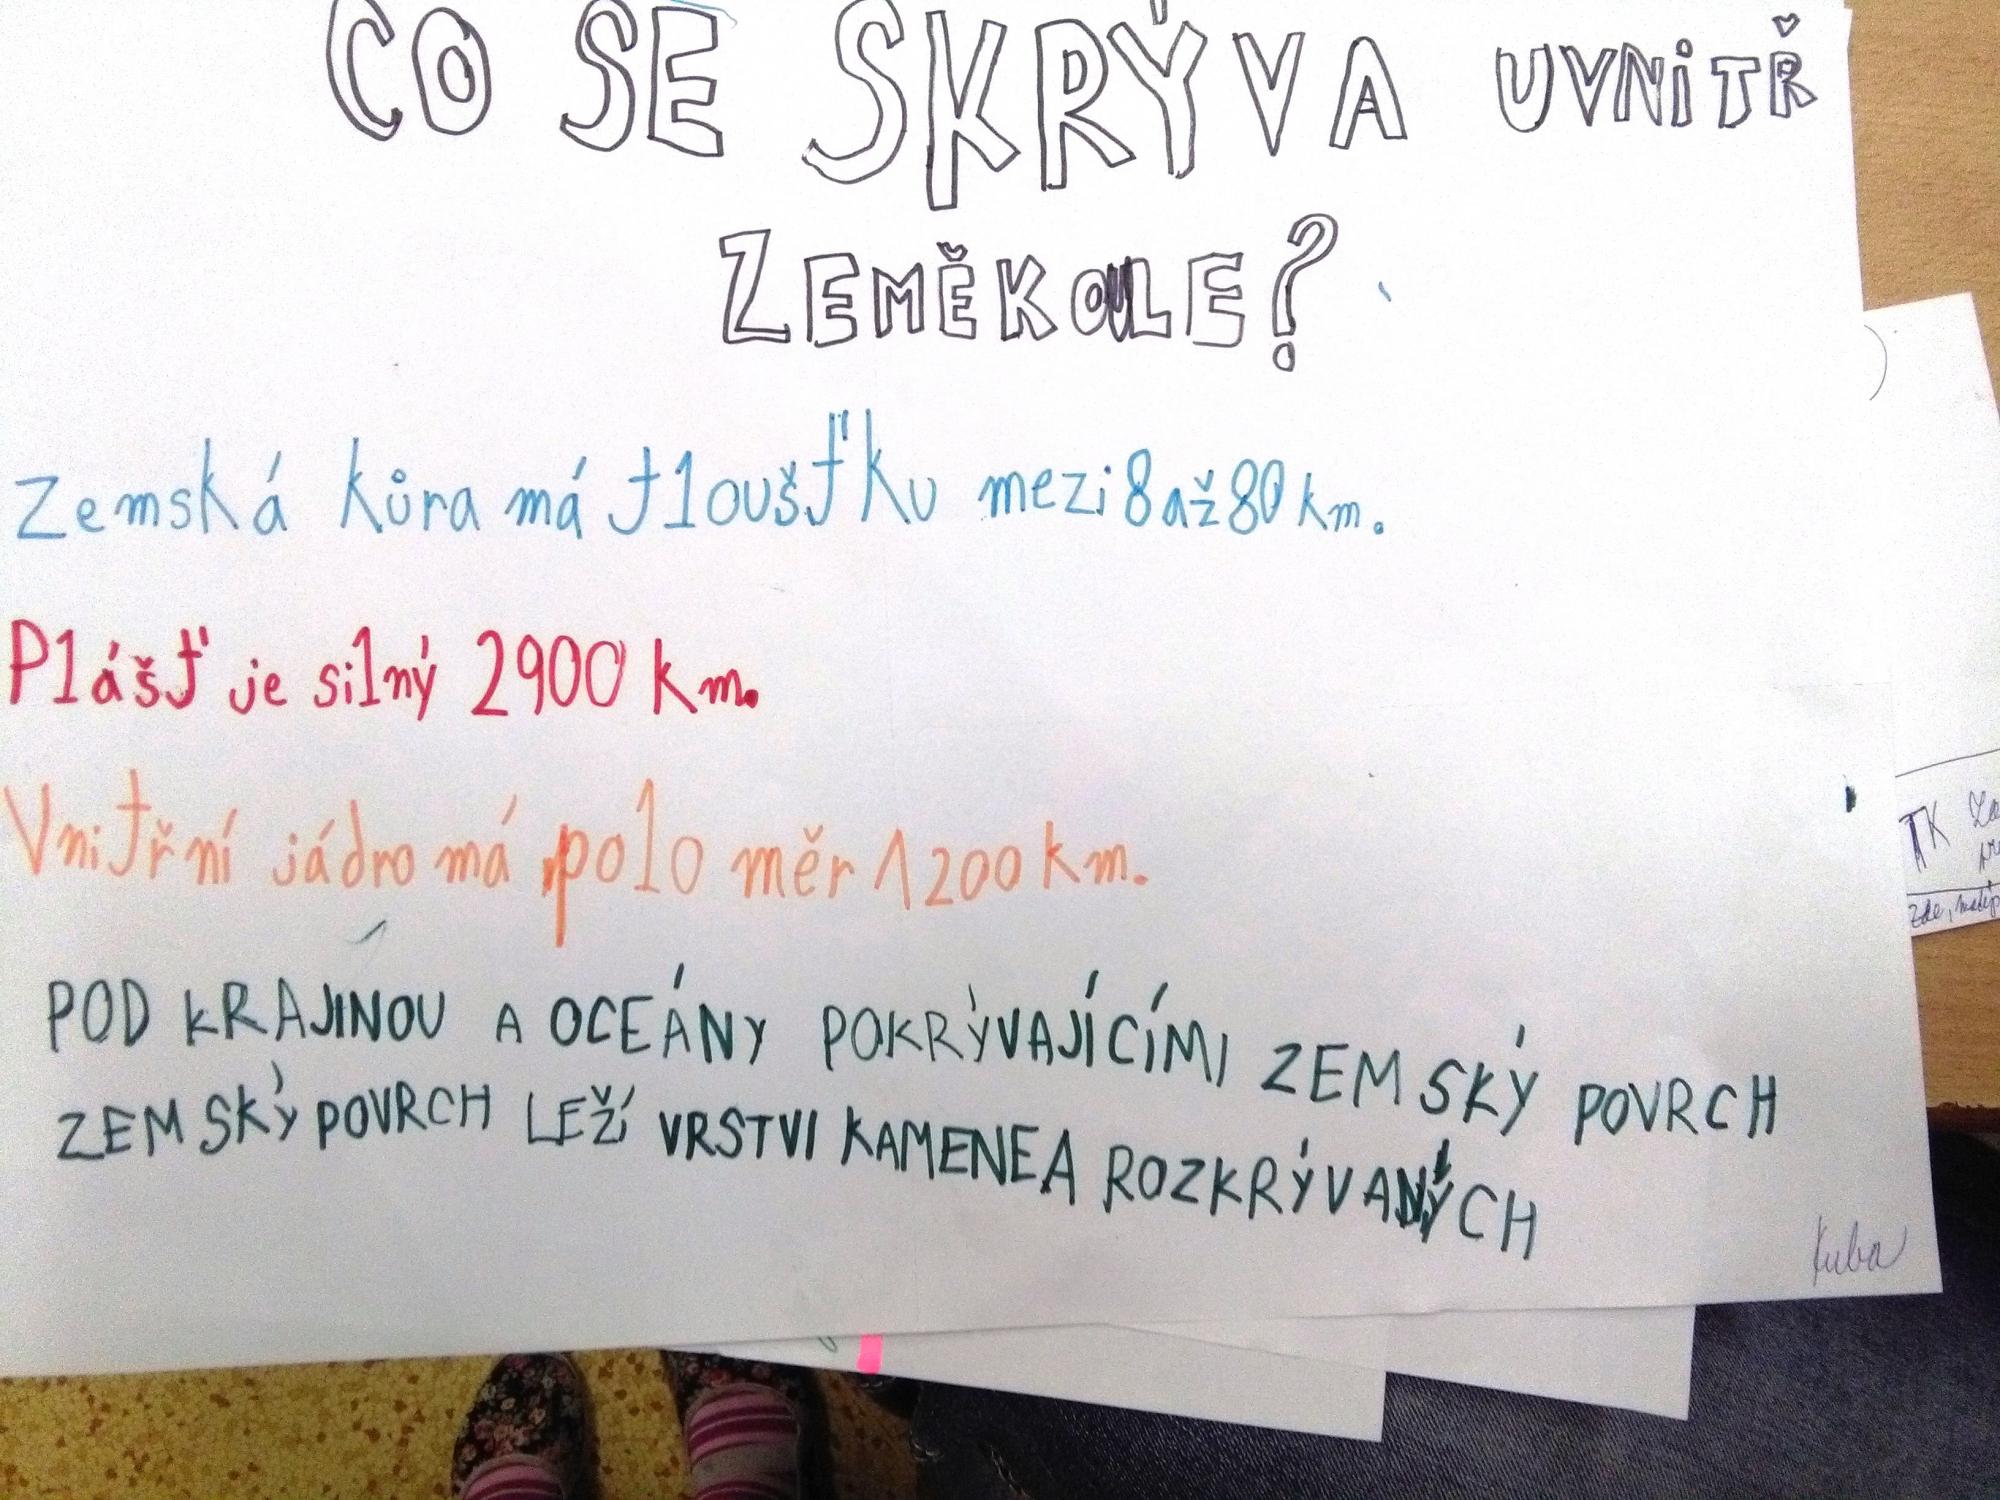 CO SE SKRÝVA UVNiTŘ
ZEMĚKOULE?
Zemská kůra má tloušťku mezi 8 až 80 km.
Plášť je silný 2900 km.
Vnitřní jádro má polo měr 1200 km.
POD KRAJINOU A OCEÁNY POKRÝVAJÍCÍMI ZEMSKÝ POVRCH
ZEMSKÝ POVRCH LEŽÍ VRSTVI KAMENE A ROZKRÝVANÝCH
Kuba
TK
zde,